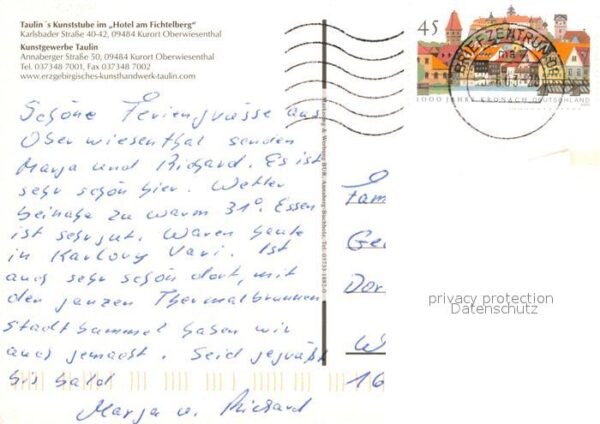 Taulin´s Kunststube im „Hotel am Fichtelberg"
Karlsbader Straße 40-42, 09484 Kurort Oberwiesenthal
Kunstgewerbe Taulin
Annaberger Straße 50, 09484 Kurort Oberwiesenthal
Tel. 037348 7001, Fax 037348 7002
www.erzgebirgisches-kunsthandwerk-taulin.com
Schöne Feriengrüsse aus
Oberwiesenthal senden
Marja und Richard. Es ist
sehr schön hier. Wetter
beinahe zu warm 31°. Essen
ist sehr gut. Waren heute
in Karlovy Vari. Ist
auch sehr schön dort, mit
den ganzen Thermalbrunnen
Stadtbummel haben wir
auch gemacht. Seid gegrüßt
bis bald
Marja u. Richard
45
BRIEFZENTRUM
1000 JAHRE KRONACH DEUTSCHLAND
Fam
Ge
Dor
W
16
privacy protection
Datenschutz